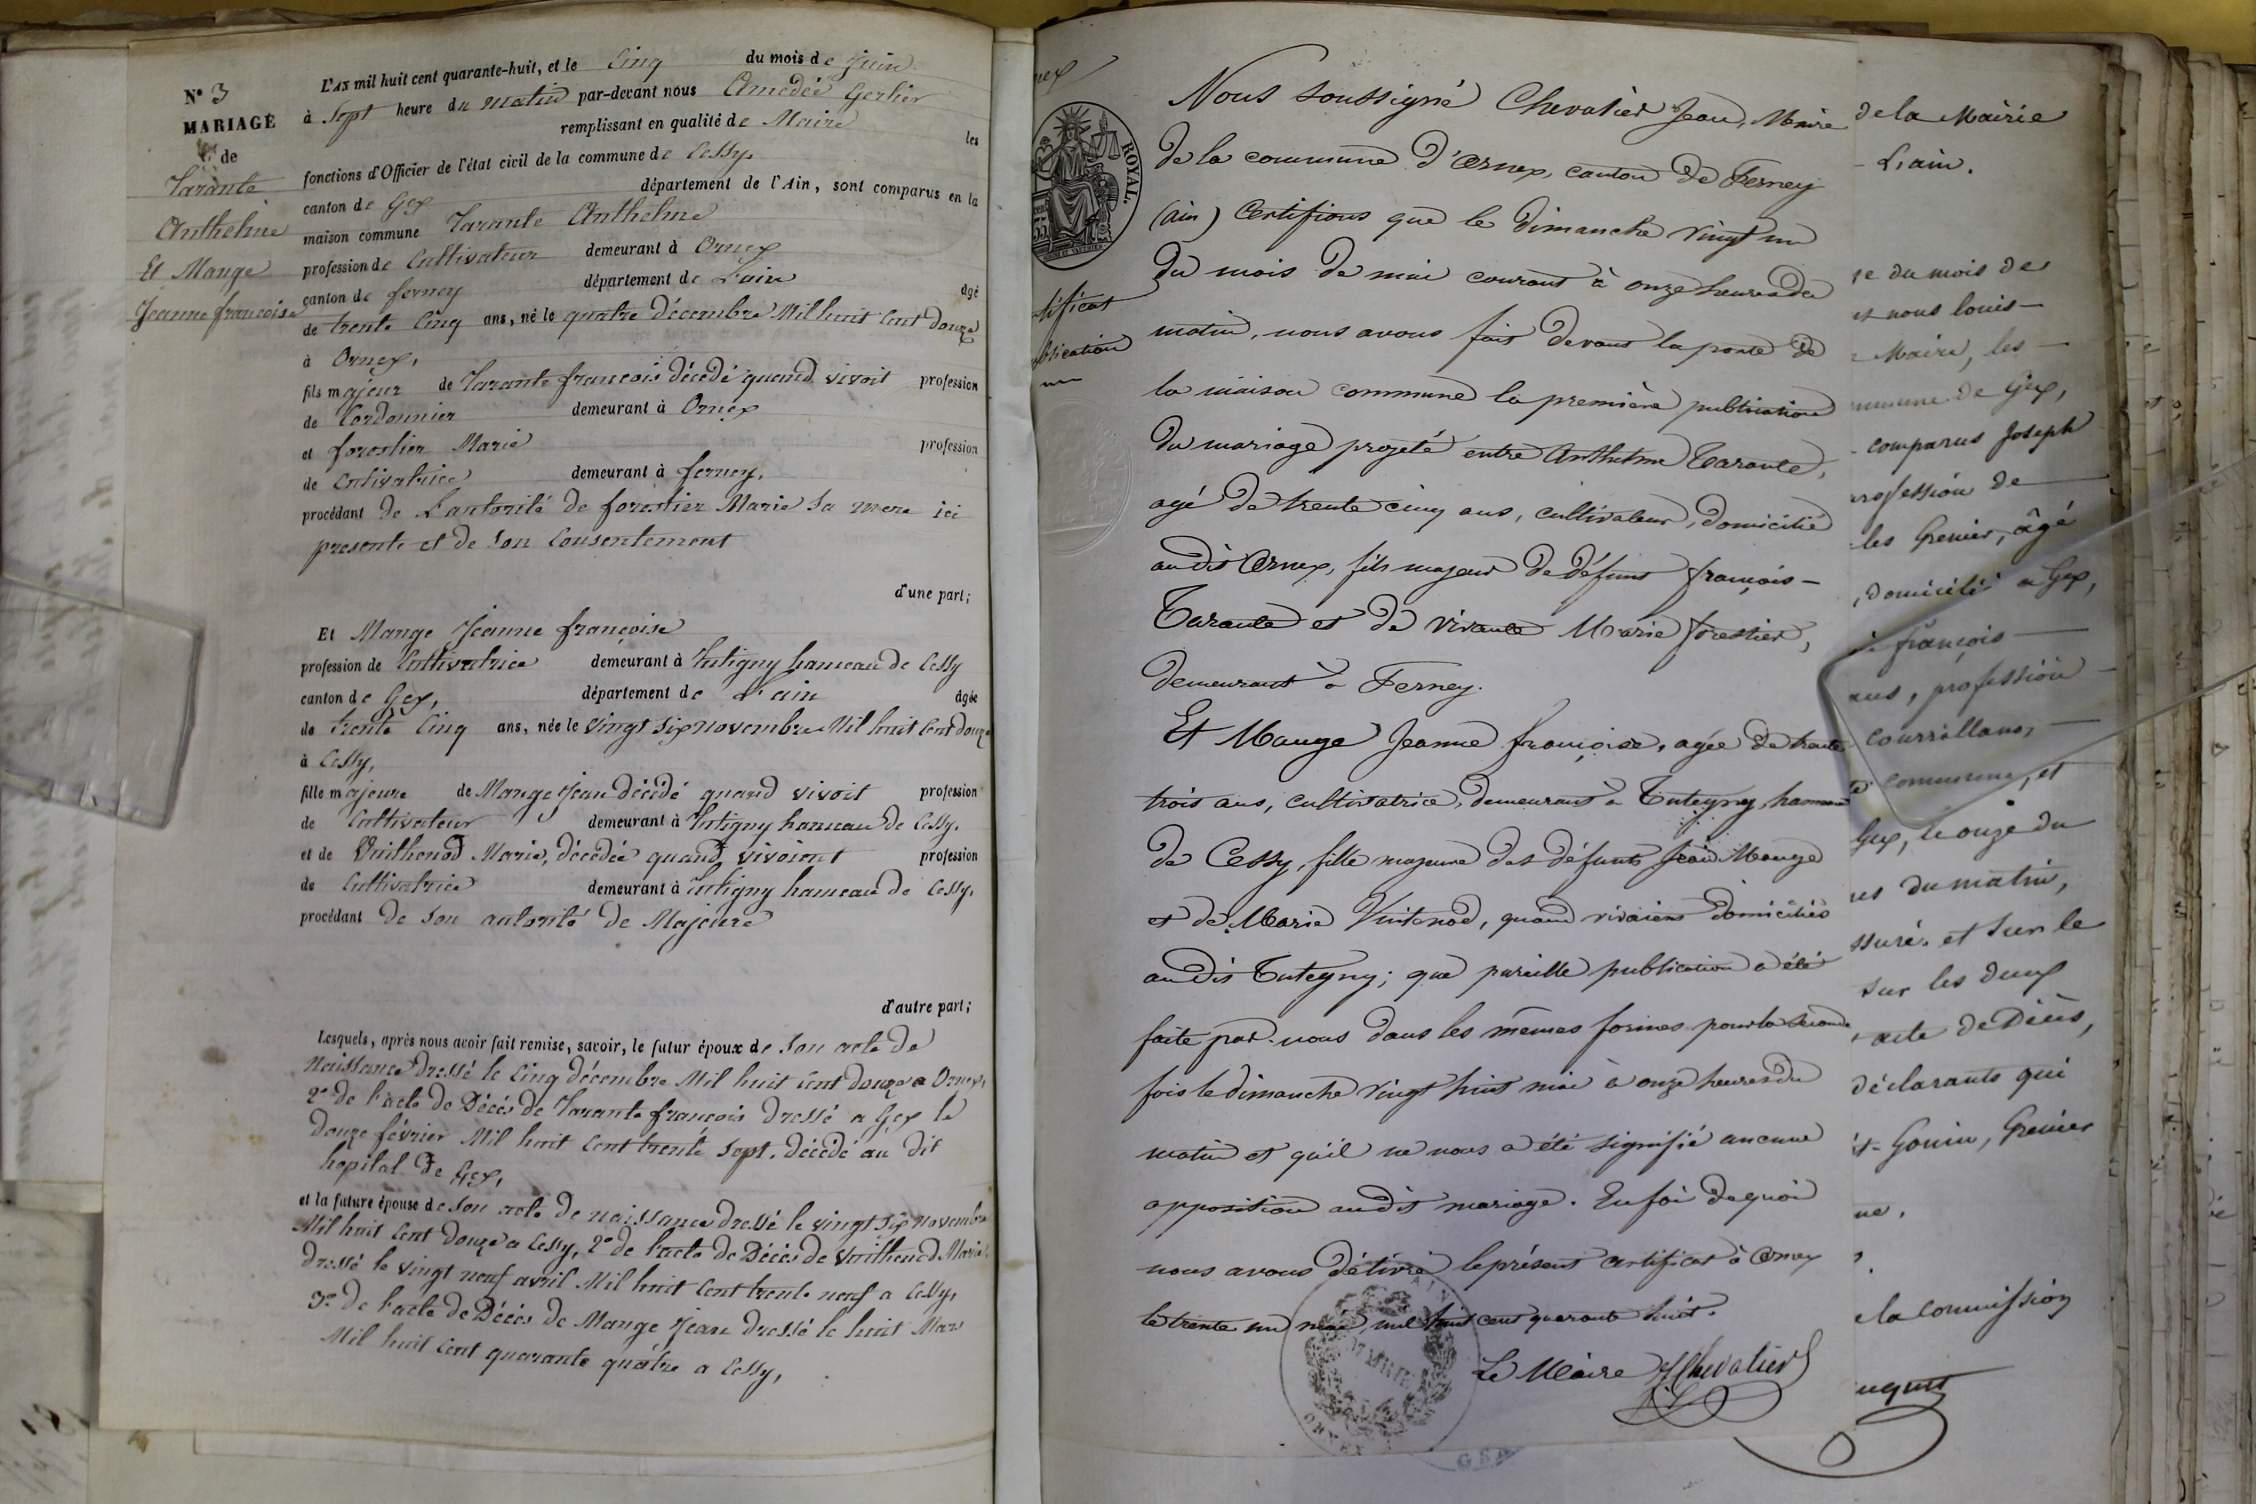 N° 3
MARIAGE
de
Tarante
Anthelme
Et Mange
Jeanne françoise
L'AN mil huit cent quarante-huit, et le Cinq du mois de Juin
à Sept heure du matin par-devant nous Amedée Gerlier
remplissant en qualité de Maire les
fonctions d'Officier de l'état civil de la commune de Cessy,
canton de Gex département de l'Ain, sont comparus en la
maison commune Tarante Anthelme
profession de Cultivateur demeurant à Ornex
canton de ferney département de L'ain âgé
de trente Cinq ans, né le quatre décembre Mil huit Cent douze
à Ornex,
fils majeur de Tarante françois décédé quand vivoit profession
de Cordonnier demeurant à Ornex
et forestier Marie profession
de Cultivatrice demeurant à ferney,
procédant de L'autorité de forestier Marie Sa mere ici
presente et de Son Consentement
d'une part;
Et Mange Jeanne françoise
profession de Cultivatrice demeurant à Tutigny hameau de Cessy
canton de Gex, département de L'ain âgée
de trente Cinq ans, née le Vingt Six novembre Mil huit Cent douze
à Cessy,
fille majeure de Mange Jean décédé quand vivoit profession
de Cultivateur demeurant à Tutigny hameau de Cessy.
et de Vuithenod Marie, décédée quand vivoient profession
de Cultivatrice demeurant à Tutigny hameau de Cessy.
procédant de Son autorité de Majeure
d'autre part;
Lesquels, après nous avoir fait remise, savoir, le futur époux de Son acte de
Naissance dressé le Cinq décembre Mil huit Cent douze a Ornex,
2° de l'acte de Décés de Tarante françois dressé a Gex le
douze février Mil huit Cent trente Sept. décédé au dit
hopital de Gex,
et la future épouse de Son acte de naissance dressé le vingt Six novembre
Mil huit Cent douze a Cessy, 2° de l'acte de Décès de Vuithenod Marie
dressé le vingt neuf avril Mil huit Cent trente neuf a Cessy,
3° de l'acte de Décés de Mange Jean dressé le huit Mars
Mil huit Cent quarante quatre a Cessy,
nex
ROYAL.
tificat
blication
Nous soussigné Chevalier Jean, Maire
de la commune d'Ornex, canton de Ferney
(ain) Certifions que le Dimanche vingt un
du mois de mai courant à onze heures du
matin, nous avons fait devant la porte de
la maison commune la première publication
du mariage projeté entre Anthelme Tarante,
agé de trente cinq ans, cultivateur, domicilié
au dit Ornex, fils majeur de défunt françois
Tarante et de vivante Marie forestier,
demeurant à Ferney.
Et Mange Jeanne françoise, agée de trente
trois ans, cultivatrice, demeurant à Tutegny, hameau
de Cessy, fille majeure des défunts Jean Mange
et de Marie Vuitenod, quand vivaient domiciliés
au dit Tutegny; que pareille publication a été
faite par nous dans les mêmes formes pour la seconde
fois le dimanche vingt huit mai à onze heures du
matin et qu'il ne nous a été signifié aucune
opposition au dit mariage. En foi de quoi
nous avons délivré le présent certificat à Ornex
le trente un mai mil huit cent quarante huit.
Le Maire J Chevalier
MAIRIE
ORNEX
de la Mairie
L'ain.
re du mois de
nous louis
Maire, les
mmune de Gex,
comparus Joseph
rofession de
les Grenier, âgé
, domicilié à Gex,
françois
ans, profession
commune, et
Gex, le onze du
es du matin,
ssuré. et sur le
sur les deux
acte de Décès,
déclarants qui
Gouin, Grenier
ne.
e la commission
uguet